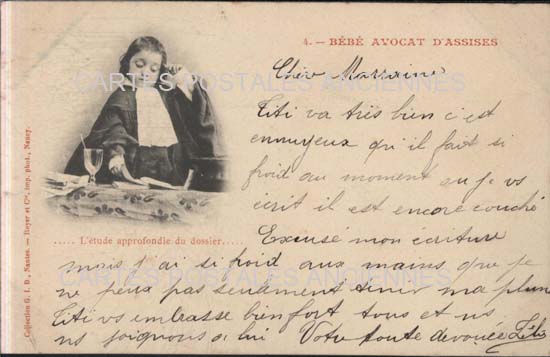 4. — BÉBÉ AVOCAT D'ASSISES
CARTES POSTALES ANCIENNES
Chèr Marraine
Titi va très bien c'est
ennuyeux qu'il fait si
froid au moment ou je vs
écrit il est encore couché
..... L'étude approfondie du dossier.....
Excusé mon écriture
mais j'ai si froid aux mains que je
CARTES POSTALES ANCIENNES
ne peux pas seulement tenir ma plume
Titi vs embrasse bien fort tous et ns
ns joignons a lui Votre toute dévouée Lili
Collection G. I. D., Nantes. — Royer et Cie, imp. phot., Nancy.